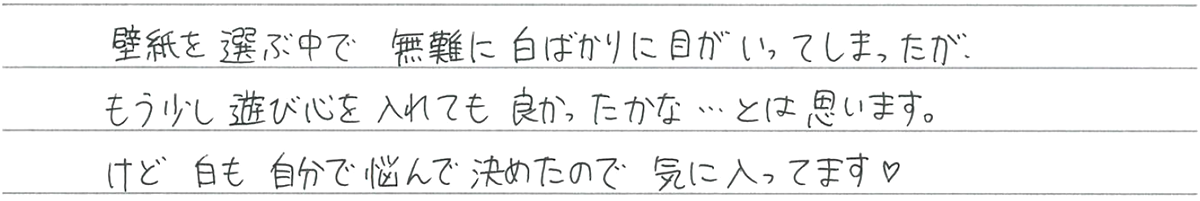 壁紙を選ぶ中で 無難に白ばかりに目がいってしまったが、
もう少し遊び心を入れても良かったかな…とは思います。
けど 白も 自分で悩んで決めたので 気に入ってます♡